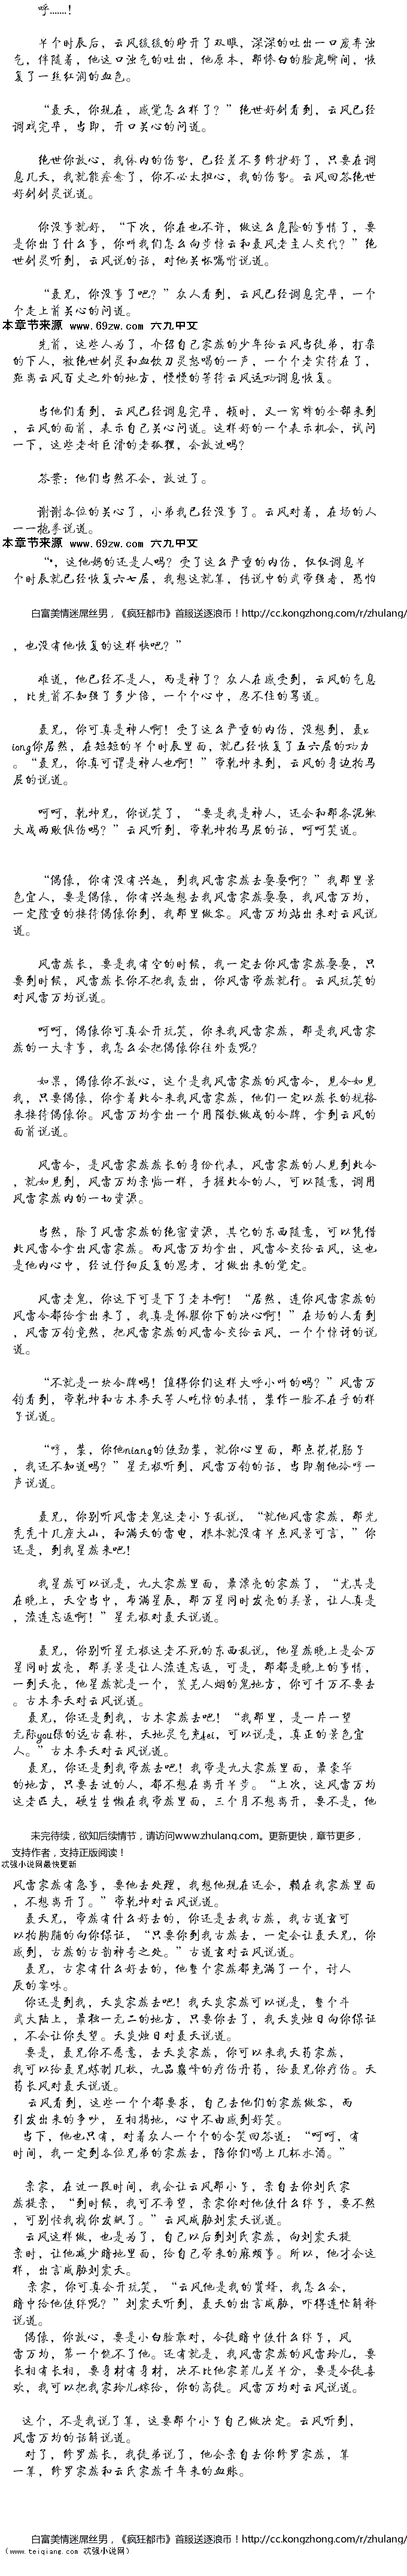 呼……！
半个时辰后，云风缓缓的睁开了双眼，深深的吐出一口废弃浊
气，伴随着，他这口浊气的吐出，他原本，那惨白的脸庞瞬间，恢
复了一丝红润的血色。
“聂天，你现在，感觉怎么样了？”绝世好剑看到，云风已经
调戏完毕，当即，开口关心的问道。
绝世你放心，我体内的伤势，已经差不多修护好了，只要在调
息几天，我就能痊愈了，你不必太担心，我的伤势。云风回答绝世
好剑剑灵说道。
你没事就好，“下次，你在也不许，做这么危险的事情了，要
是你出了什么事，你叫我们怎么向步惊云和聂风老主人交代？”绝
世剑灵听到，云风说的话，对他关怀嘱咐说道。
“聂兄，你没事了吧？”众人看到，云风已经调息完毕，一个
个走上前关心的问道。
本章节来源 www.69zw.com 六九中文
先前，这些人为了，介绍自己家族的少年给云风当徒弟，打杂
的下人，被绝世剑灵和血饮刀灵怒喝的一声，一个个老实待在了，
距离云风百丈之外的地方，慢慢的等待云风运功调息恢复。
当他们看到，云风已经调息完毕，顿时，又一窝蜂的全部来到
，云风的面前，表示自己关心问道。这样好的一个表示机会，试问
一下，这些老奸巨滑的老狐狸，会放过吗？
答案：他们当然不会，放过了。
谢谢各位的关心了，小弟我已经没事了。云风对着，在场的人
一一抱拳说道。
本章节来源 www.69zw.com 六九中文
“*，这他妈的还是人吗？受了这么严重的内伤，仅仅调息半
个时辰就已经恢复六七层，我想这就算，传说中的武帝强者，恐怕
白富美情迷屌丝男，《疯狂都市》首服送逐浪币！http://cc.kongzhong.com/r/zhulang/
，也没有他恢复的这样快吧？”
难道，他已经不是人，而是神了？众人在感受到，云风的气息
，比先前不知强了多少倍，一个个心中，忍不住的骂道。
聂兄，你可真是神人啊！受了这么严重的内伤，没想到，聂x
iong你居然，在短短的半个时辰里面，就已经恢复了五六层的功力
。“聂兄，你真可谓是神人也啊！”帝乾坤来到，云风的身边拍马
屁的说道。
呵呵，乾坤兄，你说笑了，“要是我是神人，还会和那条泥鳅
大成两败俱伤吗？”云风听到，帝乾坤拍马屁的话，呵呵笑道。
“偶像，你有没有兴趣，到我风雷家族去耍耍啊？”我那里景
色宜人，要是偶像，你有兴趣想去我风雷家族耍耍，我风雷万均，
一定隆重的接待偶像你到，我那里做客。风雷万均站出来对云风说
道。
风雷族长，要是我有空的时候，我一定去你风雷家族耍耍，只
要到时候，风雷族长你不把我轰出，你风雷帝族就行。云风玩笑的
对风雷万均说道。
呵呵，偶像你可真会开玩笑，你来我风雷家族，那是我风雷家
族的一大幸事，我怎么会把偶像你往外轰呢？
如果，偶像你不放心，这个是我风雷家族的风雷令，见令如见
我，只要偶像，你拿着此令来我风雷家族，他们一定以族长的规格
来接待偶像你。风雷万均拿出一个用陨铁做成的令牌，拿到云风的
面前说道。
风雷令，是风雷家族族长的身份代表，风雷家族的人见到此令
，就如见到，风雷万均亲临一样，手握此令的人，可以随意，调用
风雷家族内的一切资源。
当然，除了风雷家族的绝密资源，其它的东西随意，可以凭借
此风雷令拿出风雷家族。而风雷万均拿出，风雷令交给云风，这也
是他内心中，经过仔细反复的思考，才做出来的觉定。
风雷老鬼，你这下可是下了老本啊！“居然，连你风雷家族的
风雷令都给拿出来了，我真是佩服你下的决心啊！”在场的人看到
，风雷万钧竟然，把风雷家族的风雷令交给云风，一个个惊讶的说
道。
“不就是一块令牌吗！值得你们这样大呼小叫的吗？”风雷万
钧看到，帝乾坤和古木李天等人吃惊的表情，装作一脸不在乎的样
子说道。
“哼，装，你他niang的使劲装，就你心里面，那点花花肠子
，我还不知道吗？”星无极听到，风雷万钧的话，当即朝他冷哼一
声说道。
聂兄，你别听风雷老鬼这老小子乱说，“就他风雷家族，那光
秃秃十几座大山，和满天的雷电，根本就没有半点风景可言，”你
还是，到我星族来吧！
我星族可以说是，九大家族里面，最漂亮的家族了，“尤其是
在晚上，天空当中，布满星辰，那万星同时发亮的美景，让人真是
，流连忘返啊！”星无极对聂天说道。
聂兄，你别听星无极这老不死的东西乱说，他星族晚上是会万
星同时发亮，那美景是让人流连忘返，可是，那都是晚上的事情，
一到天亮，他星族就是一个，荒芜人烟的鬼地方，你可千万不要去
。古木李天对云风说道。
聂兄，你还是到我，古木家族去吧！“我那里，是一片一望
无际you绿的远古森林，天地灵气充fei，可以说是，真正的景色宜
人。”古木李天对云风说道。
聂兄，你还是到我帝族去吧！我帝是九大家族里面，最豪华
的地方，只要去过的人，都不想在离开半步。“上次，这风雷万均
这老匹夫，硬生生懒在我帝族里面，三个月不想离开，要不是，他
未完待续，欲知后续情节，请访问www.zhulang.com。更新更快，章节更多，
支持作者，支持正版阅读！
忒强小说网最快更新
风雷家族有急事，要他去处理，我想他现在还会，赖在我家族里面
，不想离开了。”帝乾坤对云风说道。
聂天兄，帝族有什么好去的，你还是去我古族，我古道玄可
以拍胸脯的向你保证，“只要你到我古族去，一定会让聂天兄，你
感到，古族的古韵神奇之处。”古道玄对云风说道。
聂兄，古家有什么好去的，他整个家族都充满了一个，讨人
厌的霉味。
你还是到我，天炎家族去吧！我天炎家族可以说是，整个斗
武大陆上，最独一无二的地方，只要你去了，我天炎烛日向你保证
，不会让你失望。天炎烛日对聂天说道。
要是，聂兄你不愿意，去天炎家族，你可以来我天药家族，
我可以给聂兄炼制几枚，九品巅峰的疗伤丹药，给聂兄你疗伤。天
药长风对聂天说道。
云风看到，这些一个个都要求，自己去他们的家族做客，而
引发出来的争吵，互相揭地，心中不由感到好笑。
当下，他也只有，对着众人一个个的含笑回答道：“呵呵，有
时间，我一定到各位兄弟的家族去，陪你们喝上几杯水酒。”
亲家，在过一段时间，我会让云风那小子，亲自去你刘氏家
族提亲，“到时候，我可不希望，亲家你对他使什么绊子，要不然
，可别怪我找你发飙了。”云风威胁刘震天说道。
云风这样做，也是为了，自己以后到刘氏家族，向刘震天提
亲时，让他减少暗地里面，给自己带来的麻烦事。所以，他才会这
样，出言威胁刘震天。
亲家，你可真会开玩笑，“云风他是我的贤婿，我怎么会，
暗中给他使绊呢？”刘震天听到，聂天的出言威胁，吓得连忙解释
说道。
偶像，你放心，要是小白脸章对，令徒暗中使什么绊子，风
雷万均，第一个饶不了他。还有就是，我风雷家族的风雷玲儿，要
长相有长相，要身材有身材，决不比他家菲儿差半分，要是令徒喜
欢，我可以把我家玲儿嫁给，你的高徒。风雷万均对云风说道。
这个，不是我说了算，这要那个小子自己做决定。云风听到，
风雷万均的话解说道。
对了，修罗族长，我徒弟说了，他会亲自去你修罗家族，算
一算，修罗家族和云氏家族千年来的血账。
白富美情迷屌丝男，《疯狂都市》首服送逐浪币！http://cc.kongzhong.com/r/zhulang/
（www.teiqiang.com 忒强小说网）